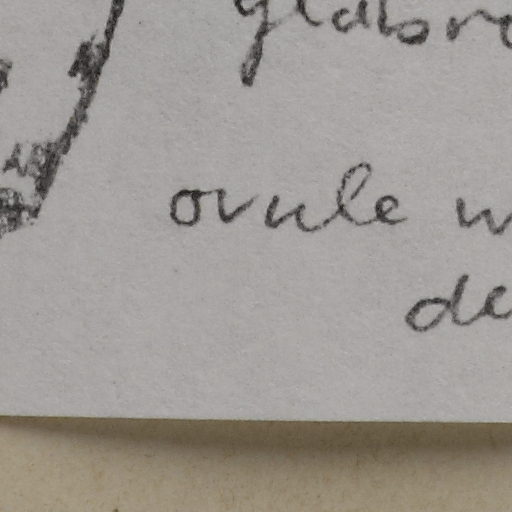 glabr
ovule w
de